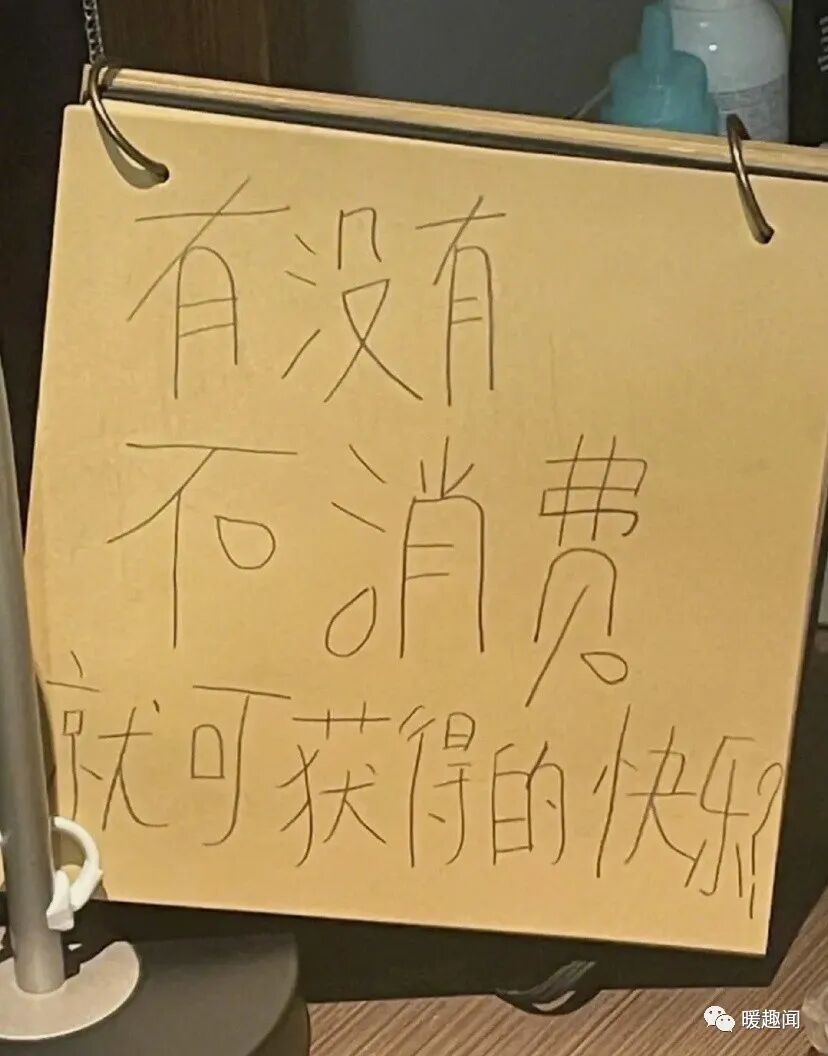 有没有
不消费
就可获得的快乐?
暖趣闻